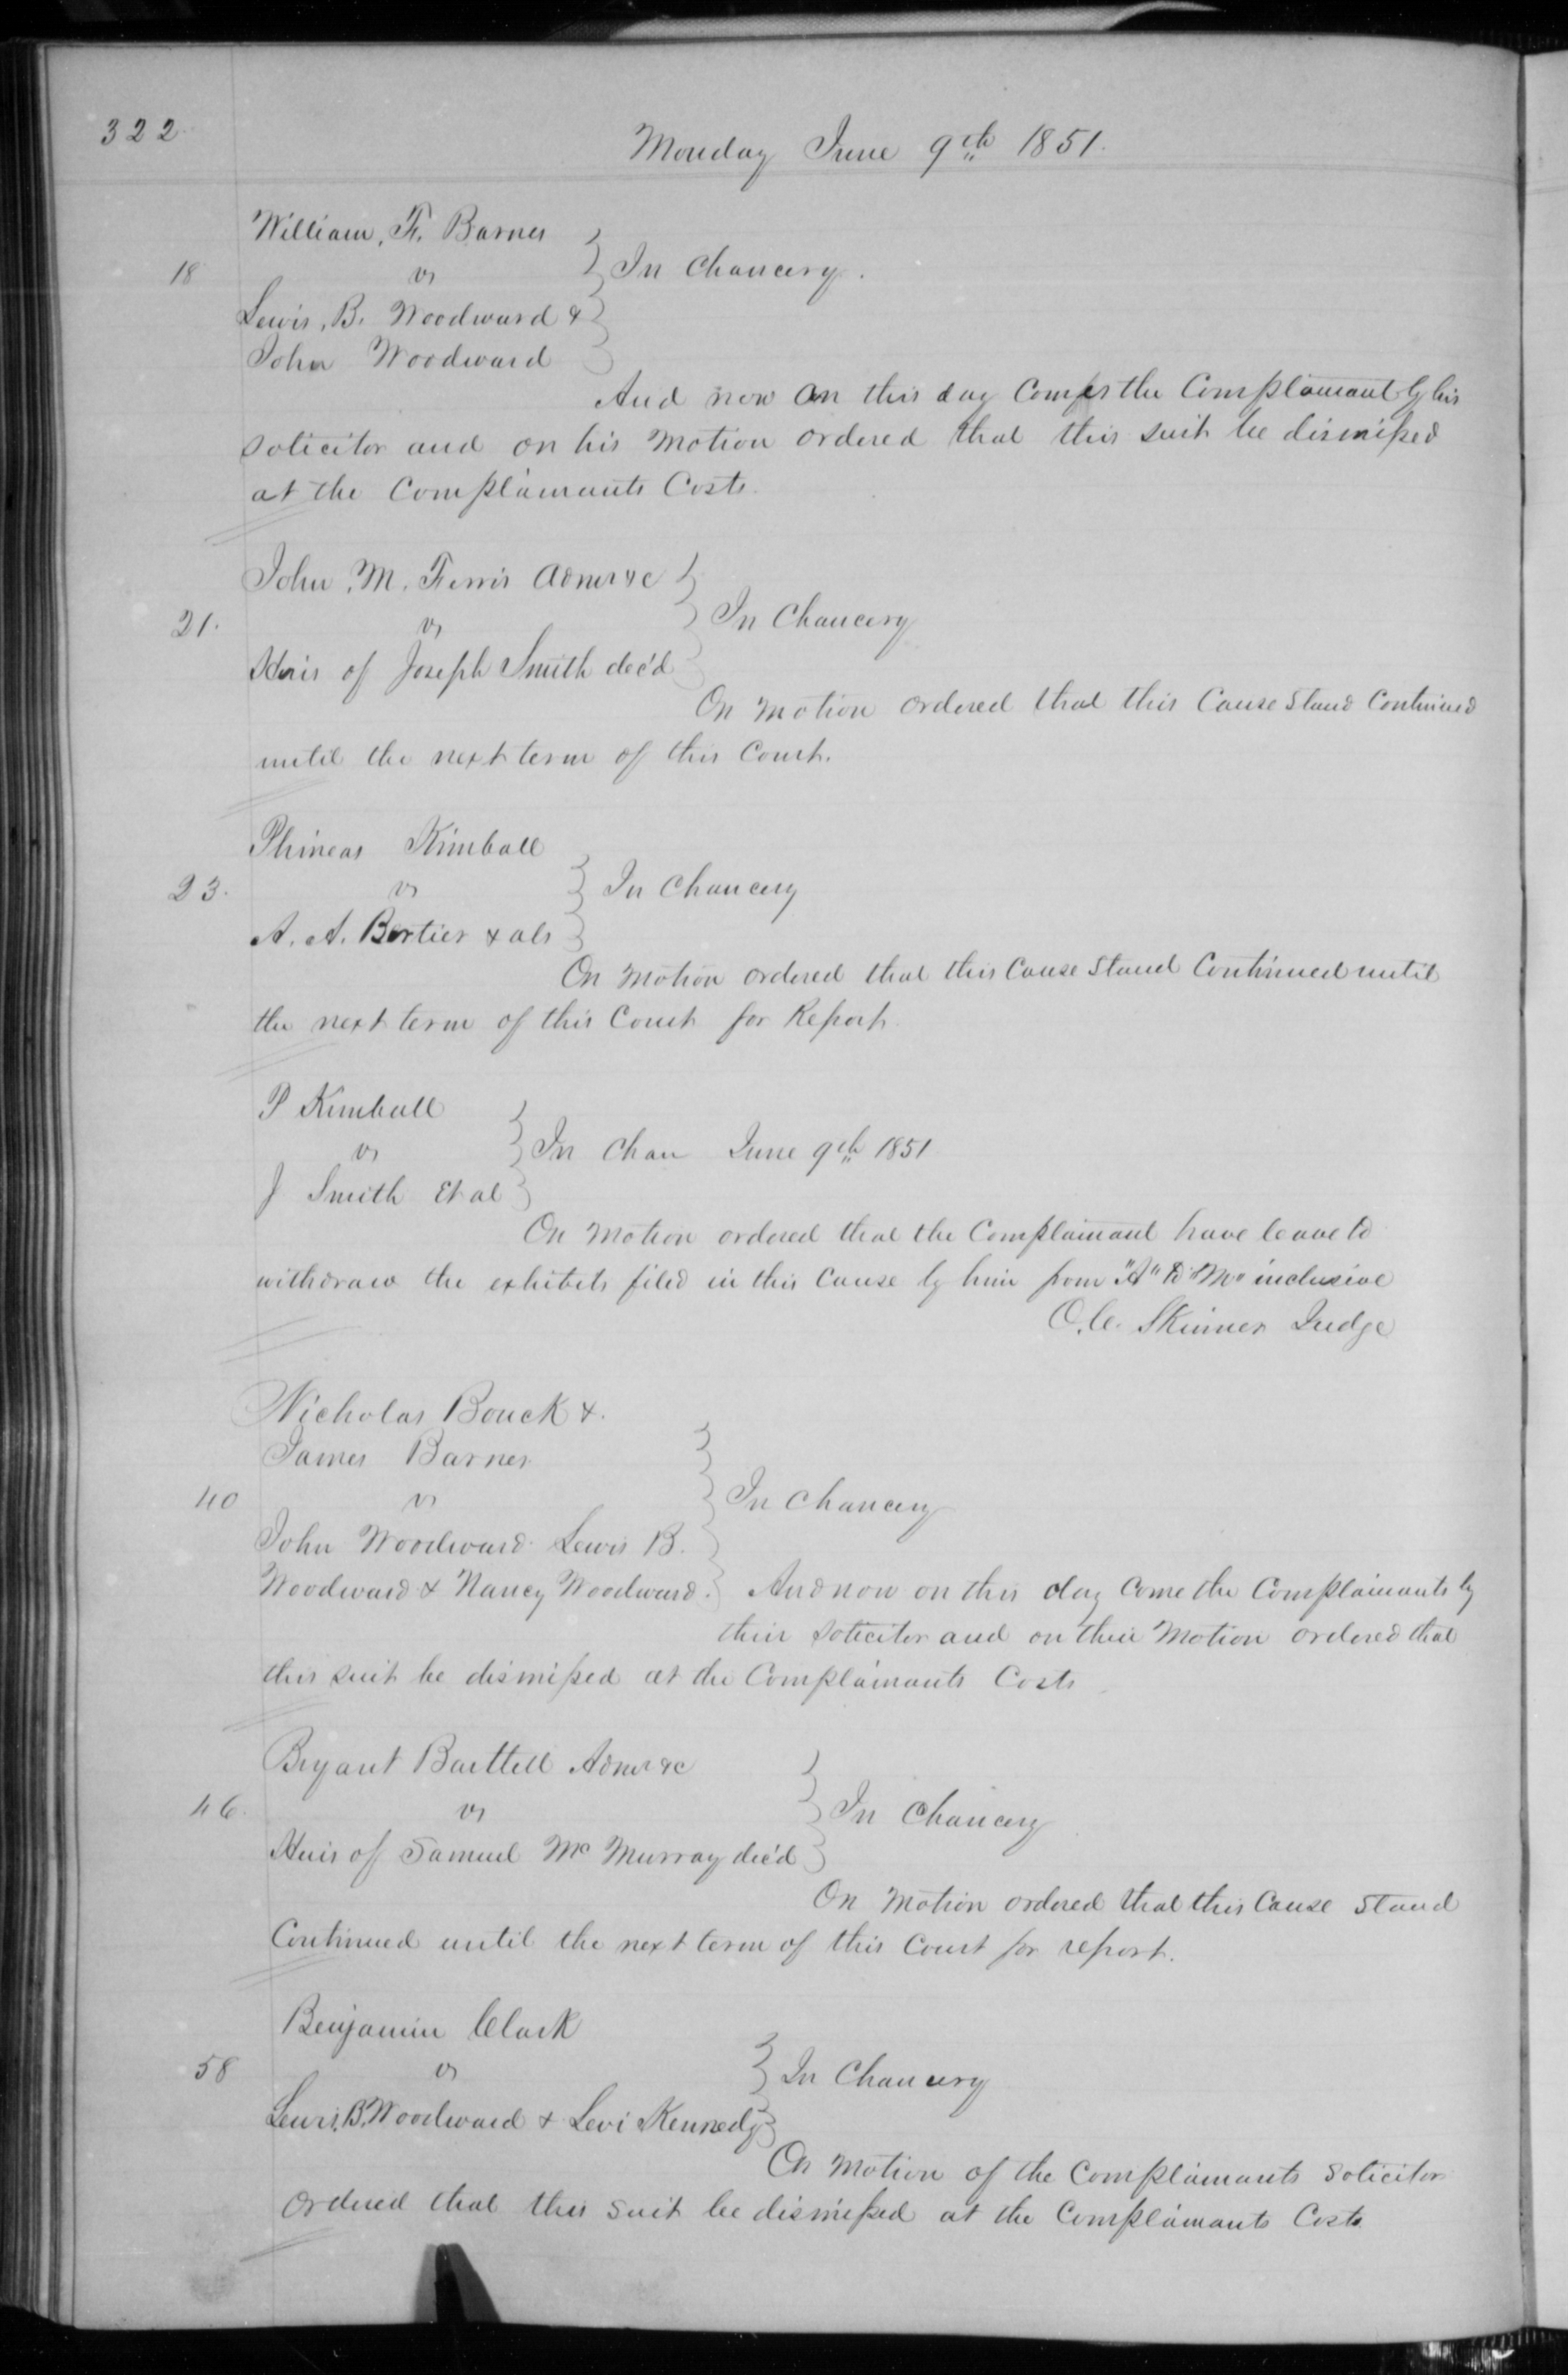 322
Monday June 9th 1851.
William, F. Barnes
18 vs In Chancery.
Lewis, B. Woodward &
John Woodward
And now on this day Comes the Complainant by his
solicitor and on his Motion ordered that this suit be dismissed
at the Complainants Costs.
John, M. Ferris Admr &c
21. vs In Chancery
Heirs of Joseph Smith dec'd
On Motion ordered that this Cause Stand Continued
until the next term of this Court.
Phineas Kimball
23. vs In Chancery
A. A. Bertier & als
On Motion ordered that this Cause Stand Continued until
the next term of this Court for Report.
P Kimball
vs In Chan June 9th 1851
J Smith Et al
On Motion ordered that the Complainant have leave to
withdraw the exhibits filed in this Cause by him from "A" to "M" inclusive
O. C. Skinner Judge
Nicholas Bouck &.
James Barnes
40 vs In Chancery
John Woodward Lewis B.
Woodward & Nancy Woodward. And now on this day Come the Complainants by
their solicitor and on their Motion ordered that
this suit be dismissed at the Complainants Costs
Bryant Barttell Admr &c
46. vs In Chancery
Heirs of Samuel Mc Murray dec'd
On Motion ordered that this Cause Stand
Continued until the next term of this Court for report.
Benjamin Clark
58 vs In Chancery
Lewis, B. Woodward & Levi Kennedy
On Motion of the Complainants Solicitor
Ordered that this Suit be dismissed at the Complainants Costs